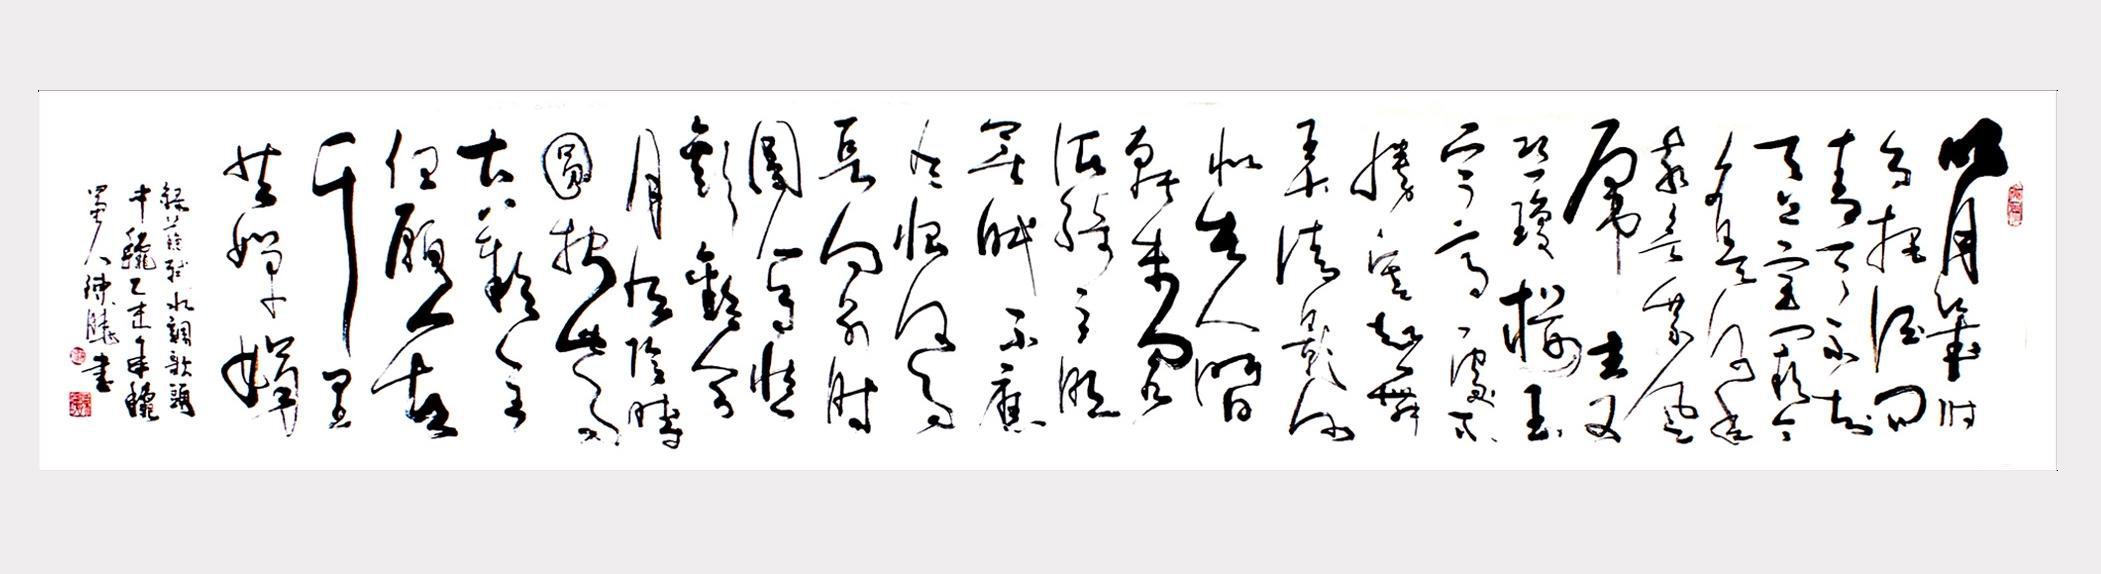 明月幾時
有把酒問
青天不知
天上宮闕今
夕是何年
我欲乘風
歸去又
恐瓊樓玉
宇高處不
勝寒起舞
弄清影何
似在人間
轉朱閣
低綺戶照
無眠不應
有恨何事
長向別時
圓人有悲
歡離合
月有陰晴
圓缺此事
古難全
但願人長久
千里
共嬋娟
錄蘇軾水調歌頭
中龝乙未年龝
蜀人陳曉書